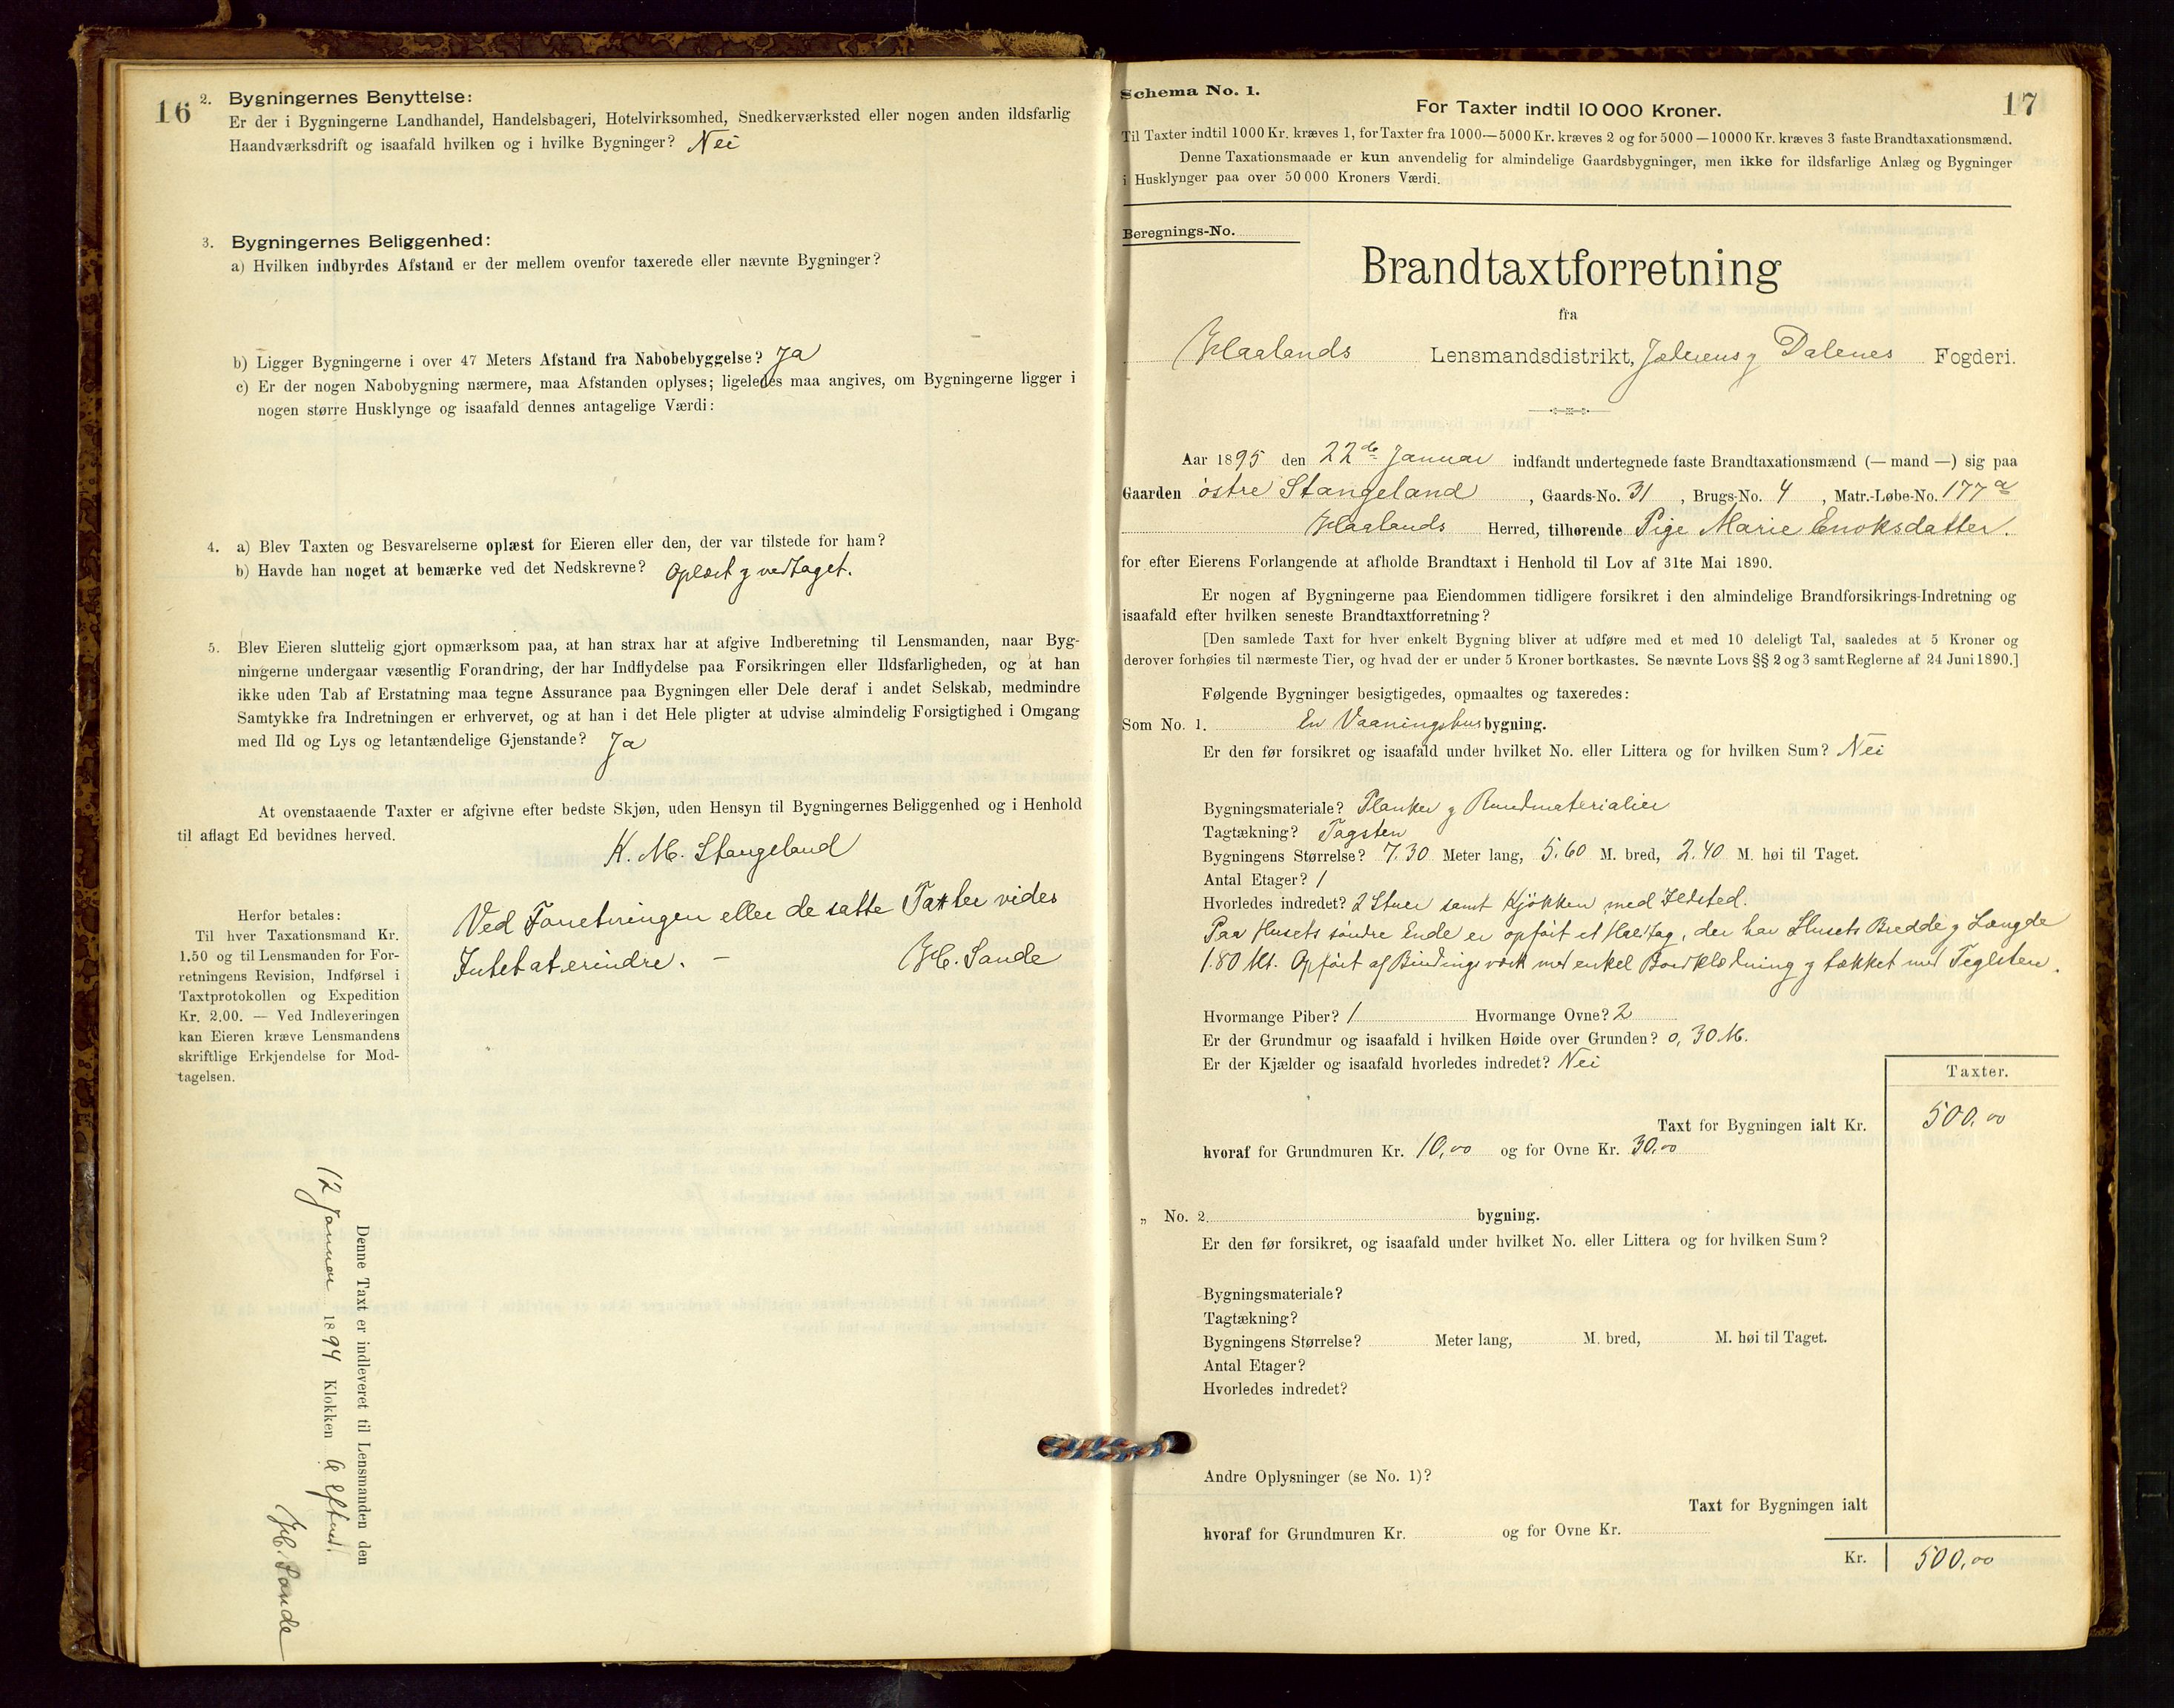 16
2. Bygningernes Benyttelse:
Er der i Bygningerne Landhandel, Handelsbageri, Hotelvirksomhed, Snedkerværksted eller nogen anden ildsfarlig
Haandværksdrift og isaafald hvilken og i hvilke Bygninger? Nei
3. Bygningernes Beliggenhed:
a) Hvilken indbyrdes Afstand er der mellem ovenfor taxerede eller nævnte Bygninger?
b) Ligger Bygningerne i over 47 Meters Afstand fra Nabobebyggelse? Ja
c) Er der nogen Nabobygning nærmere, maa Afstanden oplyses; ligeledes maa angives, om Bygningerne ligger i
nogen større Husklynge og isaafald dennes antagelige Værdi:
4. a) Blev Taxten og Besvarelserne oplæst for Eieren eller den, der var tilstede for ham?
b) Havde han noget at bemærke ved det Nedskrevne? Oplæst og vedtaget.
5. Blev Eieren sluttelig gjort opmærksom paa, at han strax har at afgive Indberetning til Lensmanden, naar Byg-
ningerne undergaar væsentlig Forandring, der har Indflydelse paa Forsikringen eller Ildsfarligheden, og at han
ikke uden Tab af Erstatning maa tegne Assurance paa Bygningen eller Dele deraf i andet Selskab, medmindre
Samtykke fra Indretningen er erhvervet, og at han i det Hele pligter at udvise almindelig Forsigtighed i Omgang
med Ild og Lys og letantændelige Gjenstande? Ja
At ovenstaaende Taxter er afgivne efter bedste Skjøn, uden Hensyn til Bygningernes Beliggenhed og i Henhold
til aflagt Ed bevidnes herved.
K. M. Stangeland
Ved Forretningen eller de satte Taxter vides
Intet at erindre. –
H. Sande
Herfor betales:
Til hver Taxationsmand Kr.
1.50 og til Lensmanden for For-
retningens Revision, Indførsel i
Taxtprotokollen og Expedition
Kr. 2.00. — Ved Indleveringen
kan Eieren kræve Lensmandens
skriftlige Erkjendelse for Mod-
tagelsen.
Denne Taxt er indleveret til Lensmanden den
12 Januar 1894 Klokken 6 Eftmd.
H. Sande
17
Schema No. 1.
For Taxter indtil 10 000 Kroner.
Til Taxter indtil 1000 Kr. kræves 1, for Taxter fra 1000—5000 Kr. kræves 2 og for 5000—10000 Kr. kræves 3 faste Brandtaxationsmænd.
Denne Taxationsmaade er kun anvendelig for almindelige Gaardsbygninger, men ikke for ildsfarlige Anlæg og Bygninger
i Husklynger paa over 50 000 Kroners Værdi.
Beregnings-No.
Brandtaxtforretning
fra
Haalands Lensmandsdistrikt, Jæderens og Dalenes Fogderi.
Aar 1895 den 22de Januar indfandt undertegnede faste Brandtaxationsmænd (— mand —) sig paa
Gaarden østre Stangeland, Gaards-No. 31, Brugs-No. 4, Matr.-Løbe-No. 177a
Haalands Herred, tilhørende Pige Marie Enoksdatter.
for efter Eierens Forlangende at afholde Brandtaxt i Henhold til Lov af 31te Mai 1890.
Er nogen af Bygningerne paa Eiendommen tidligere forsikret i den almindelige Brandforsikrings-Indretning og
isaafald efter hvilken seneste Brandtaxtforretning?
[Den samlede Taxt for hver enkelt Bygning bliver at udføre med et med 10 deleligt Tal, saaledes at 5 Kroner og
derover forhøies til nærmeste Tier, og hvad der er under 5 Kroner bortkastes. Se nævnte Lovs §§ 2 og 3 samt Reglerne af 24 Juni 1890.]
Følgende Bygninger besigtigedes, opmaaltes og taxeredes:
Som No. 1. En Vaaningshusbygning.
Er den før forsikret og isaafald under hvilket No. eller Littera og for hvilken Sum? Nei
Bygningsmateriale? Planker og Bundmaterialier
Tagtækning? Tagsten
Bygningens Størrelse? 7.30 Meter lang, 5.60 M. bred, 2.40 M. høi til Taget.
Antal Etager? 1
Hvorledes indredet? 2 Stuer samt Kjøkken med Ildsted.
Paa Husets søndre Ende er opført et Halvtag, der har Husets Bredde og Længde
1.80 M. Opført af Bindingsværk med enkel Bordklædning og tækket med Teglsten.
Hvormange Piber? 1 Hvormange Ovne? 2
Er der Grundmur og isaafald i hvilken Høide over Grunden? 0,30 M.
Er der Kjælder og isaafald hvorledes indredet? Nei
Taxter.
Taxt for Bygningen ialt Kr. 500,00
hvoraf for Grundmuren Kr. 10,00 og for Ovne Kr. 30,00
„ No. 2. bygning.
Er den før forsikret, og isaafald under hvilket No. eller Littera og for hvilken Sum?
Bygningsmateriale?
Tagtækning?
Bygningens Størrelse? Meter lang, M. bred, M. høi til Taget.
Antal Etager?
Hvorledes indredet?
Andre Oplysninger (se No. 1)?
Taxt for Bygningen ialt
hvoraf for Grundmuren Kr. og for Ovne Kr.
Kr. 500,00